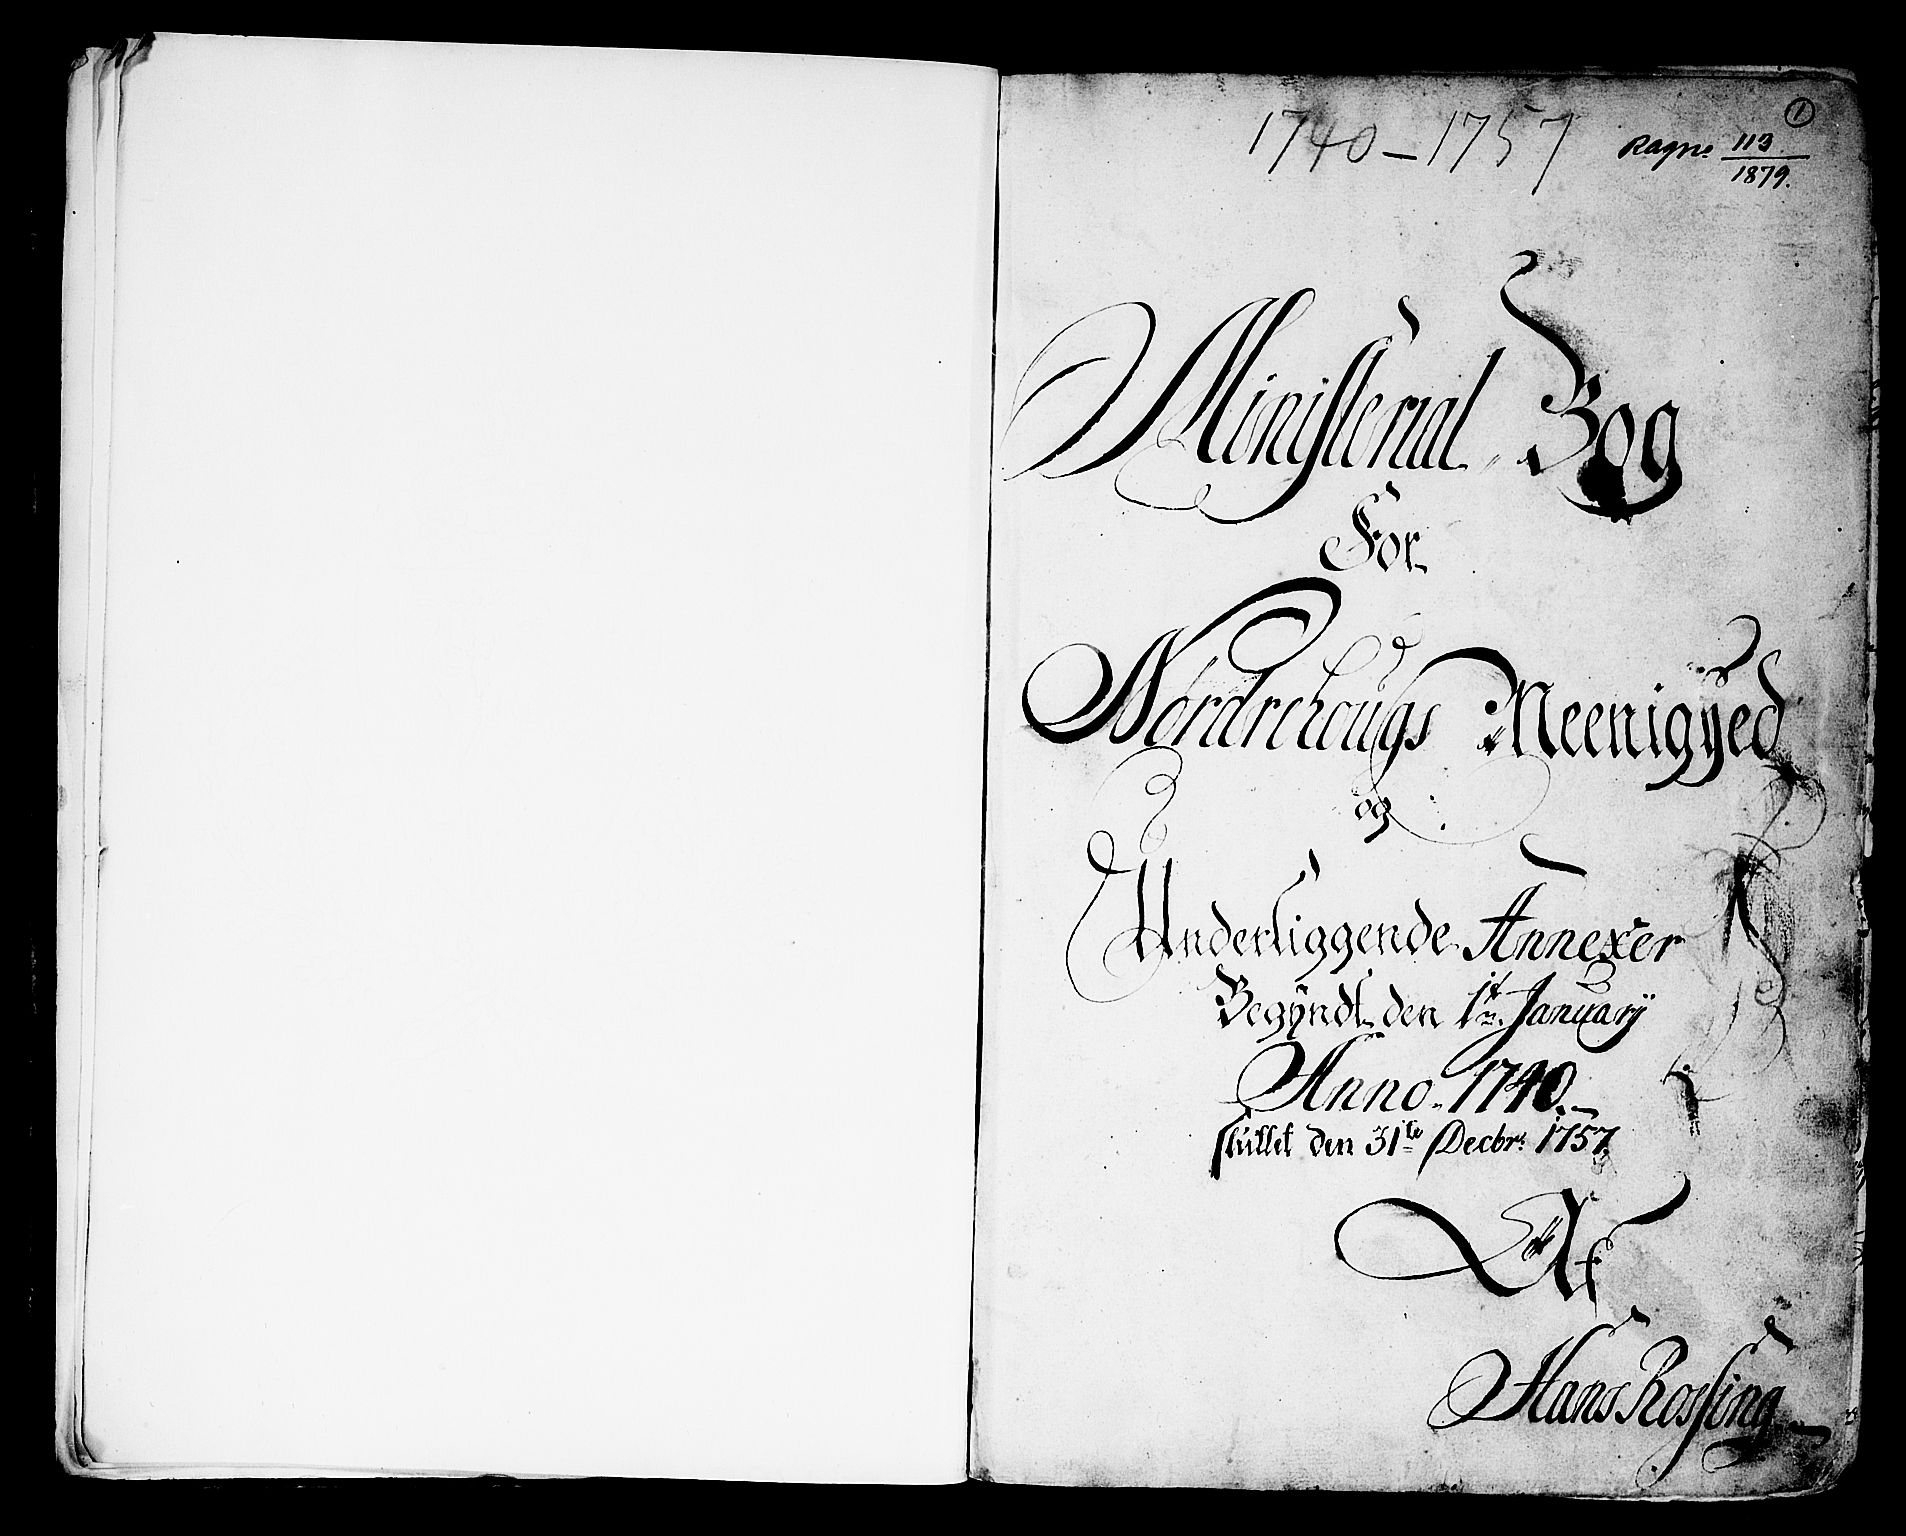 1
1740-1757
113
1879.
Ministerial Bog
For
Nordrehougs Meenigyed
og
Underliggende Annexer
Begyndt den 1te January
Anno 1740.
sluttet den 31te Decbr: 1757.
Af
Hans Rossing